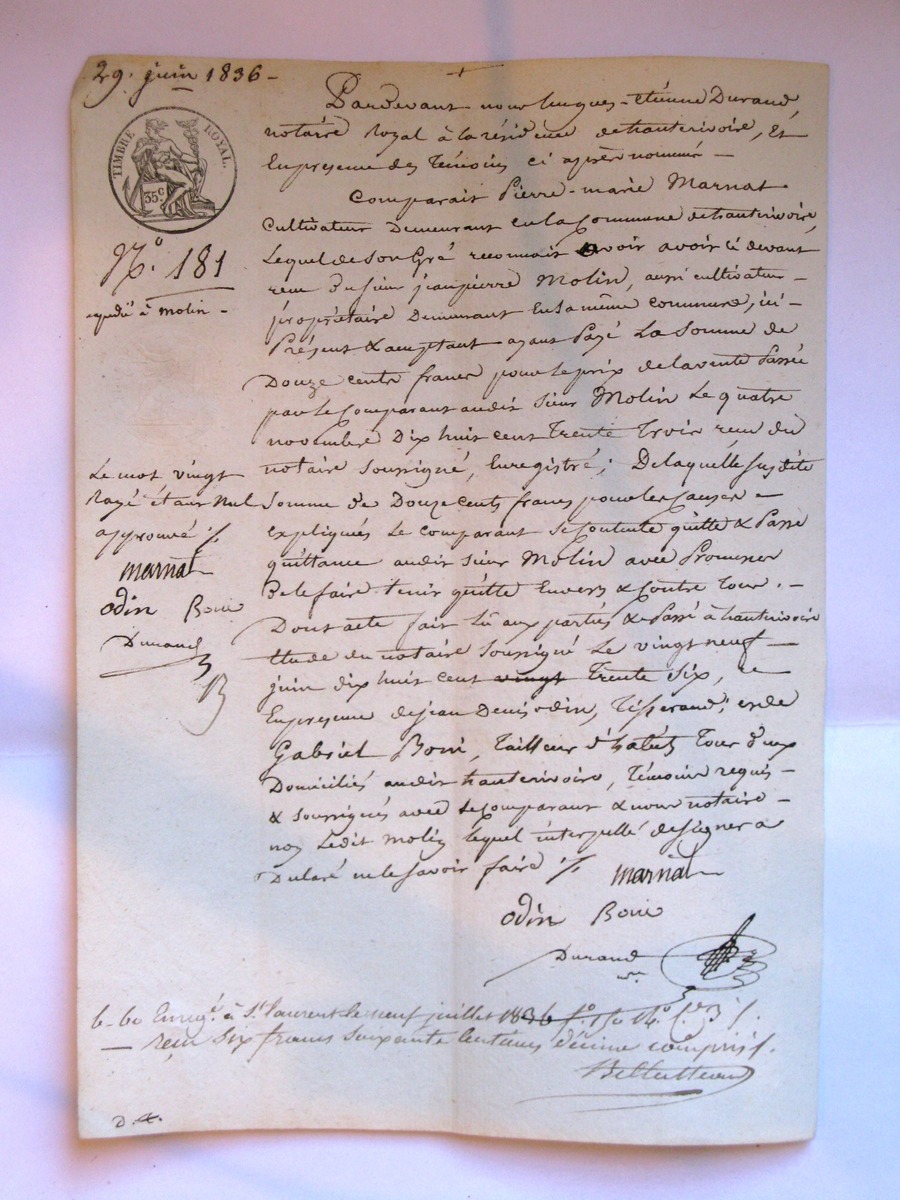 29. juin 1836 -
TIMBRE ROYAL.
35 c.
N.o 181
expédié à Molin -
Pardevant nous hugues-étienne Durand
notaire royal à la résidence de hauterivoire, Et
En presence des Témoins ci après nommés -
Comparait Pierre-marie Marnat
Cultivateur Demeurant en la Commune de hauterivoire,
Lequel de son Gré reconnait avoir avoir ci devant
recu du sieur jean pierre Molin, aussi cultivateur -
propriétaire Demeurant En la même commune, ici -
Présent & acceptant ayant Payé La Somme de
Douze cents francs pour le prix de la vente Passée
par le Comparant audit sieur Molin Le quatre
novembre Dix huit cent Trente Trois recu du
notaire soussigné, Enregistré; De laquelle susdite
Somme de Douze cents francs pour les causes -
expliquées Le comparant se Contente quitte & Passe
quittance audit sieur Molin avec Promesse
De le faire tenir quitte Envers & Contre Tous. -
Dont acte fait lu aux parties & Passé à hauterivoire
Etude du notaire soussigné Le vingt neuf -
juin dix huit cent vingt Trente Six, ce
En presence de jean Denis odin, Tisserand, et de
Gabriel Boni, Tailleur d'habits Tous deux
Domiciliés audit hauterivoire, Témoins requis -
& soussignés avec Le comparant & nous notaire -
non Ledit Molin lequel interpellé de signer a
Declaré ne le savoir faire ./.
Le mot vingt
Rayé étant nul
approuvé ./.
marnat
odin Boni
Durand
marnat
odin Boni
Durand
6-60 Enreg.é à St Laurent le neuf juillet 1836 f.o 150 r.o c.es 3 /.
reçu six francs soixante centimes décime compris /.
D. X.